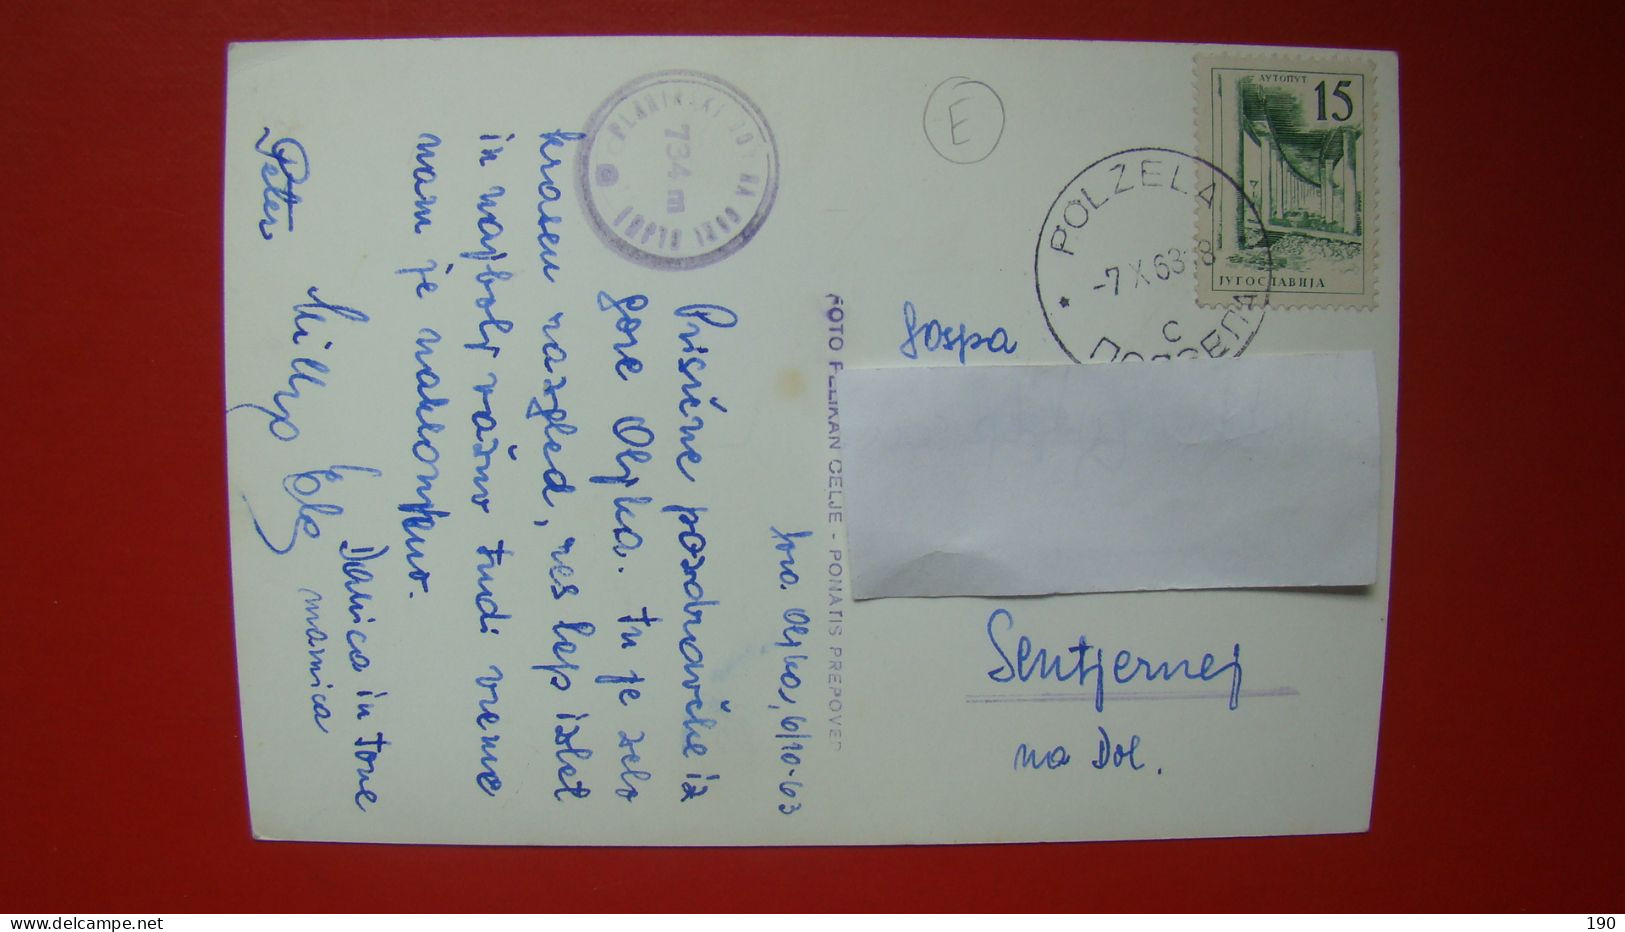 Gora Oljka, 6/10-63
Prisrčne pozdravčke iz
gore Oljka. Tu je zelo
krasen razgled, res lep izlet
in najbolj važno tudi vreme
nam je naklonjeno.
Danica in Tone
mamica
Peter
PLANINSKI DOM NA GORI OLJKI
734 m
FOTO PELIKAN CELJE - PONATIS PREPOVED
E
POLZELA
-7.X.63-18
C
ПОЛЗЕЛА
АУТОПУТ
15
ЈУГОСЛАВИЈА
Gospa
Šentjernej
na Dol.
190
delcampe.net